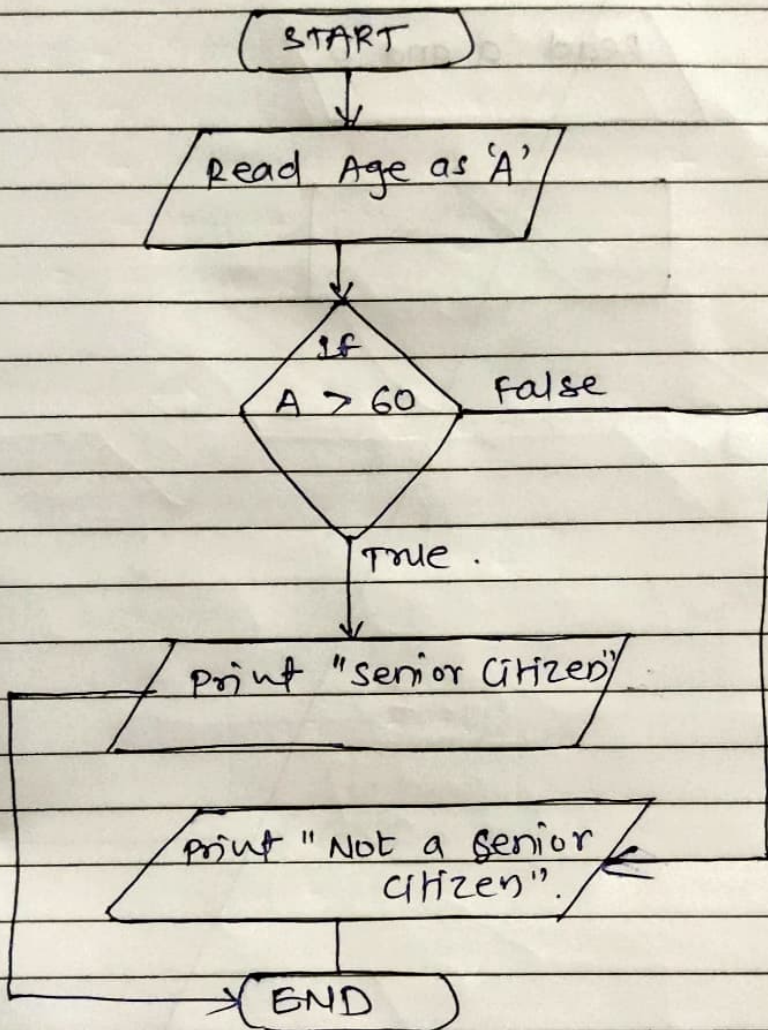 START
Read Age as 'A'
If
A > 60
False
True .
Print "Senior Citizen"
Print "Not a Senior
Citizen".
END